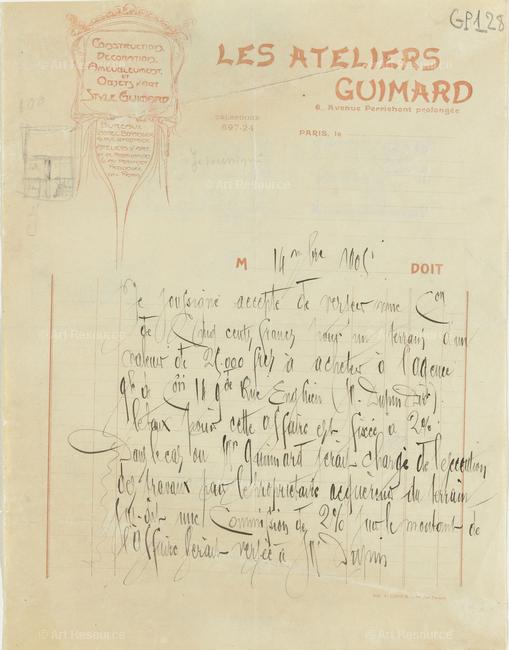 GP128
CONSTRUCTION
DECORATION
AMEUBLEMENT
ET
OBJETS D'ART
STYLE GUIMARD
BUREAUX
LES ATELIERS
GUIMARD
6, Avenue Perrichont prolongée
TÉLÉPHONE
697-24
PARIS, le
M 14 9bre 1905 DOIT
Je soussigné accepte de verser une Con
de Cinq cents francs pour un terrain d'un
valeur de 25.000 frcs à acheter à l'agence
Gle de 18 Gde Rue Enghien (Mr Dupin Dir)
le taux pour cette affaire est fixée à 2%.
Dans le cas ou Mr Guimard serait chargé de l'execution
des travaux par le propriétaire acquéreur du terrain
une Commission de 2% sur le montant de
l'Affaire serait versée à Mr Dupin
© Art Resource
© Art Resource
© Art Resource
© Art Resource
© Art Resource
© Art Resource